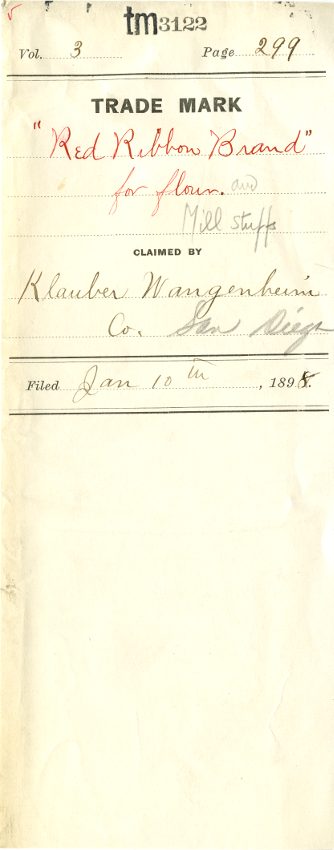 tm3122
Vol. 3 Page 299
TRADE MARK
"Red Ribbon Brand"
for flour. and
Mill stuffs
CLAIMED BY
Klauber Wangenheim
Co. San Diego
Filed Jan 10th, 1898.